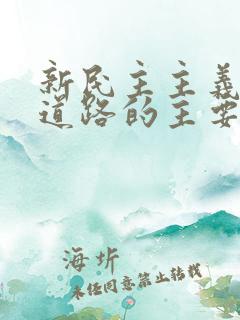 新民主主义
道路的主要
海圻
未经同意禁止转载